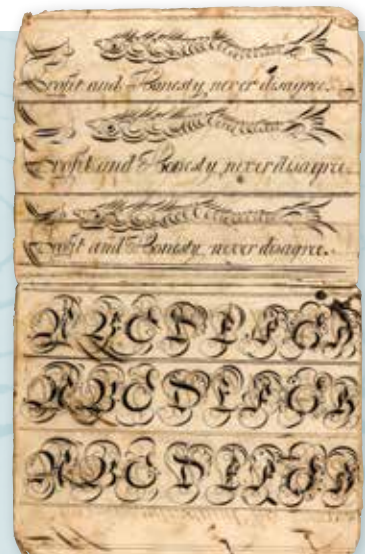 Profit and Honesty never disagree.
Profit and Honesty never disagree.
Profit and Honesty never disagree.
A B C D E F G H
A B C D E F G H
A B C D E F G H